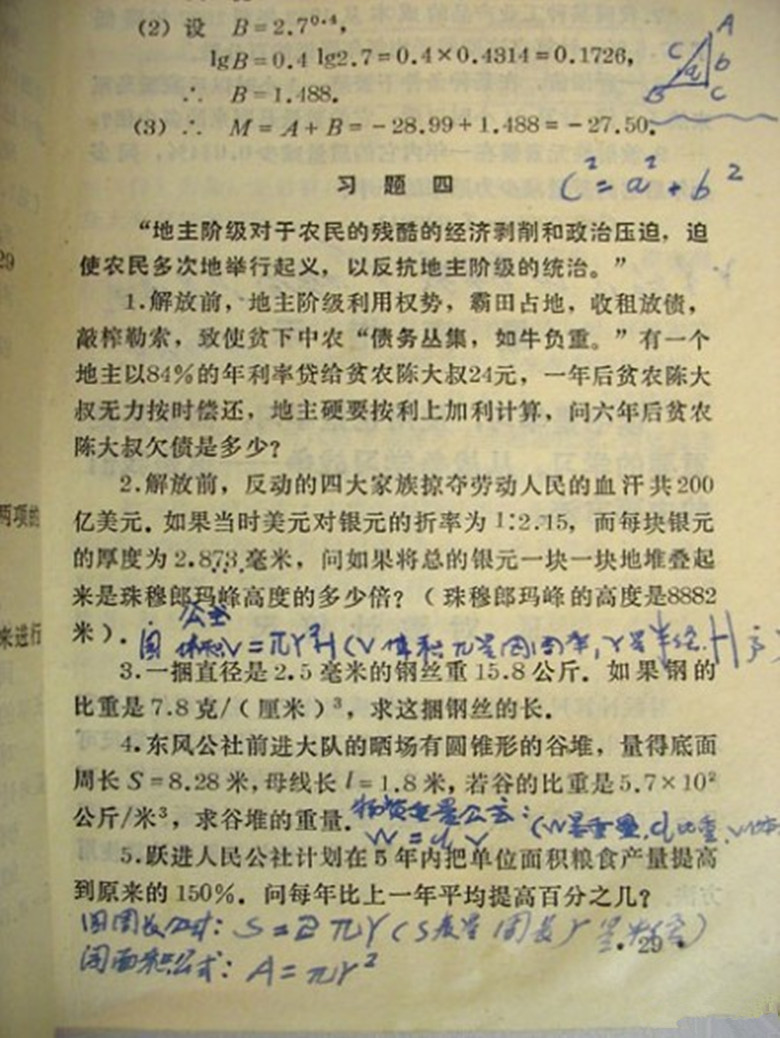 (2) 设 B=2.7⁰·⁴,
lgB=0.4 lg2.7=0.4×0.4314=0.1726,
∴ B=1.488.
(3) ∴ M=A+B=-28.99+1.488=-27.50.
A
C b
a
B C
习题四
C²=a²+b²
“地主阶级对于农民的残酷的经济剥削和政治压迫，迫
使农民多次地举行起义，以反抗地主阶级的统治。”
29
1.解放前，地主阶级利用权势，霸田占地，收租放债，
敲榨勒索，致使贫下中农“债务丛集，如牛负重。”有一个
地主以84%的年利率贷给贫农陈大叔24元，一年后贫农陈大
叔无力按时偿还，地主硬要按利上加利计算，问六年后贫农
陈大叔欠债是多少？
2.解放前，反动的四大家族掠夺劳动人民的血汗共200
两项的
亿美元．如果当时美元对银元的折率为1:2.15，而每块银元
的厚度为2.873毫米，问如果将总的银元一块一块地堆叠起
来是珠穆郎玛峰高度的多少倍？（珠穆郎玛峰的高度是8882
来进行
米）．
公式
圆体积V=πr²H(V体积π是圆周率,r是半径.H
3.一捆直径是2.5毫米的钢丝重15.8公斤．如果钢的
比重是7.8克/（厘米）³，求这捆钢丝的长．
4.东风公社前进大队的晒场有圆锥形的谷堆，量得底面
周长S=8.28米，母线长l=1.8米，若谷的比重是5.7×10²
公斤/米³，求谷堆的重量．
物质重量公式：
W=dV
(W是重量,d比重,V体
5.跃进人民公社计划在5年内把单位面积粮食产量提高
到原来的150%．问每年比上一年平均提高百分之几？
圆周长公式：S=2πr(S表是圆长r是半径)
·29·
圆面积公式：A=πr²